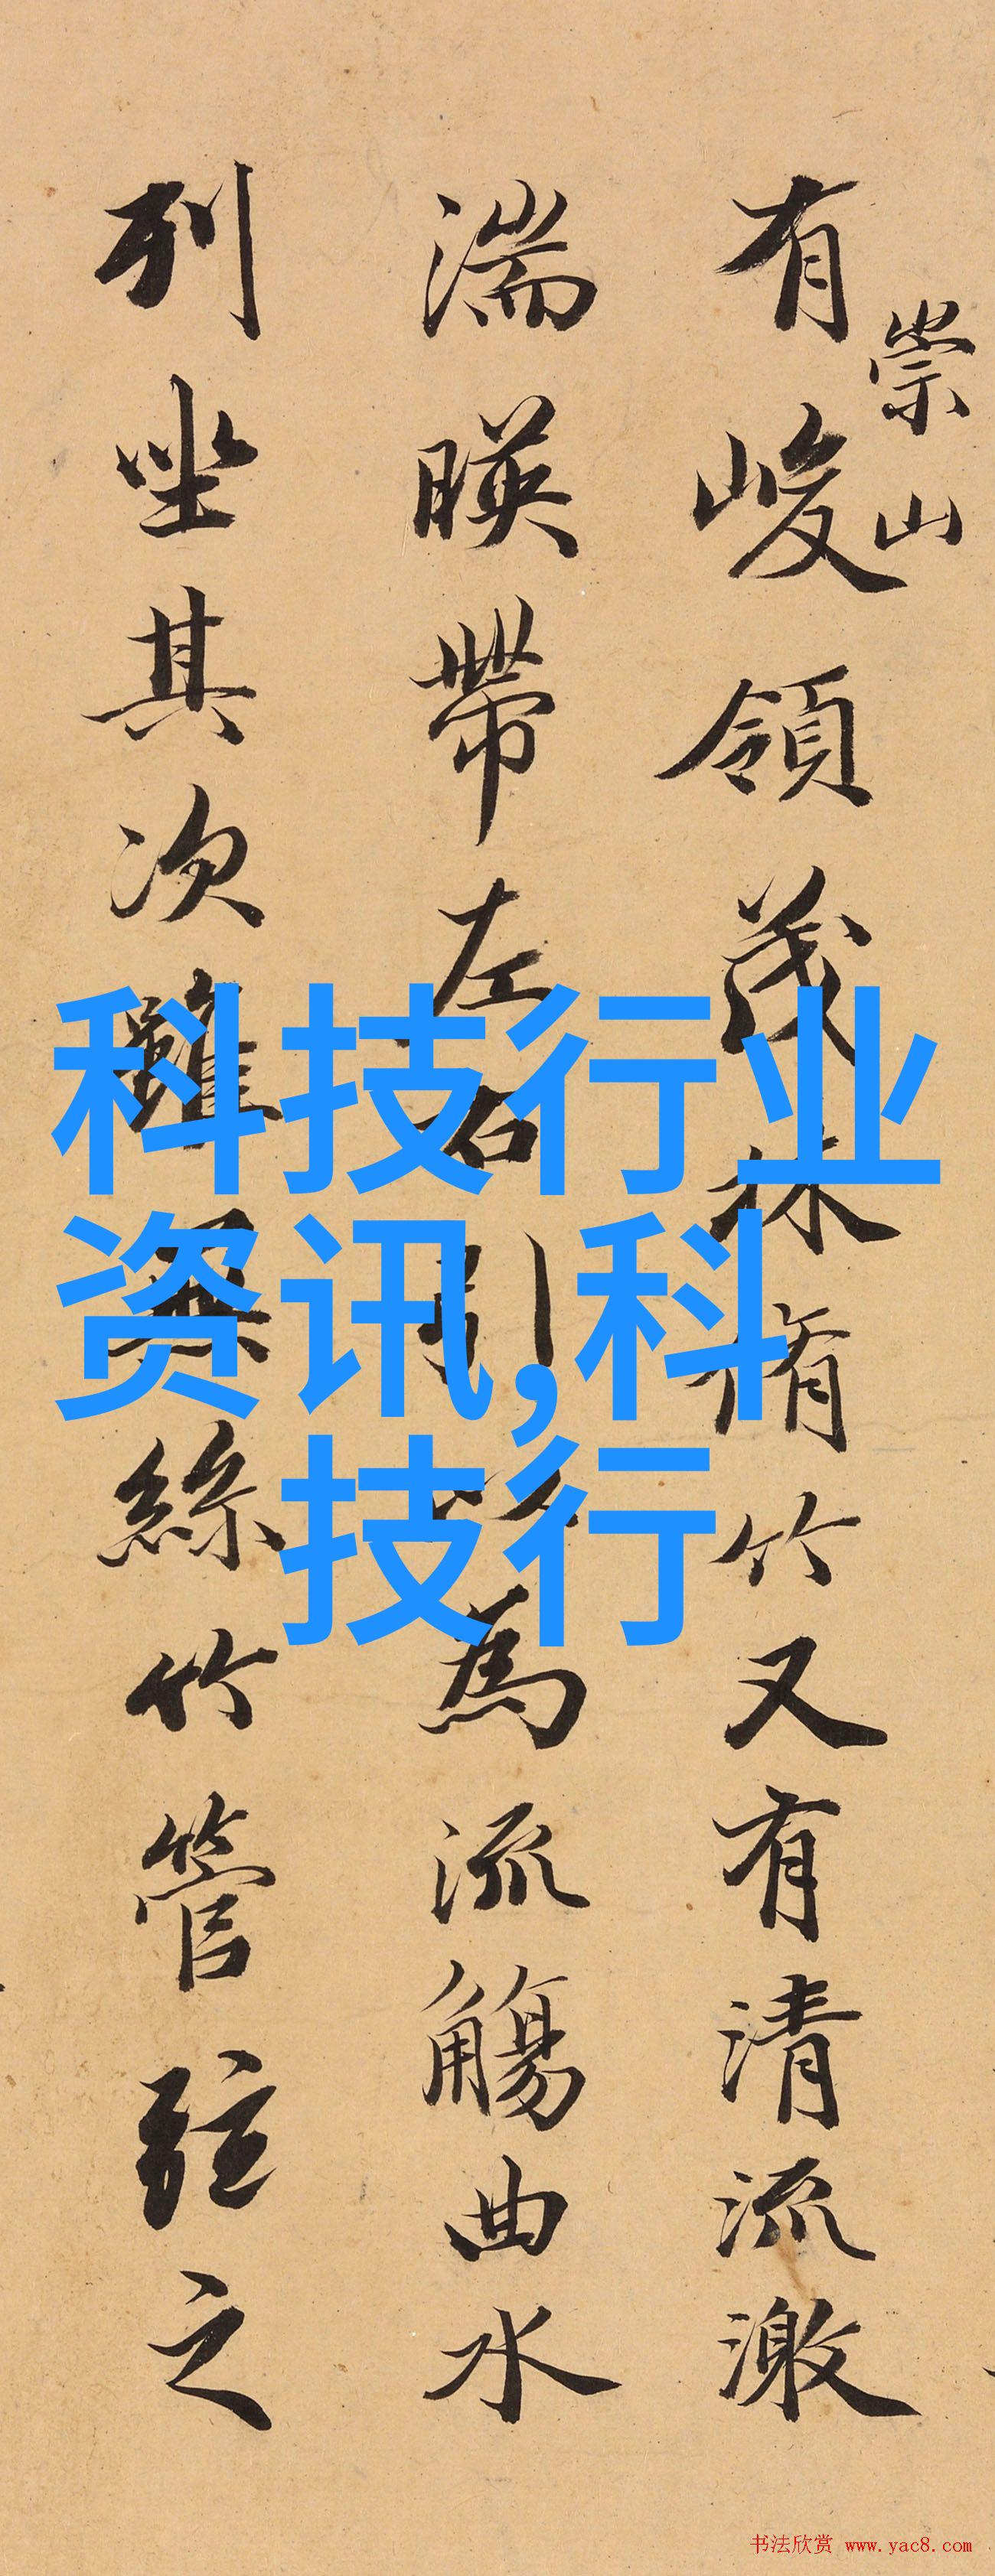 崇山
有峻領茂林脩竹又有清流激
湍暎帶左右引為流觴曲水
列坐其次雖無絲竹管弦之
科技行业
资讯,科
技行
书法欣赏 www.yac8.com